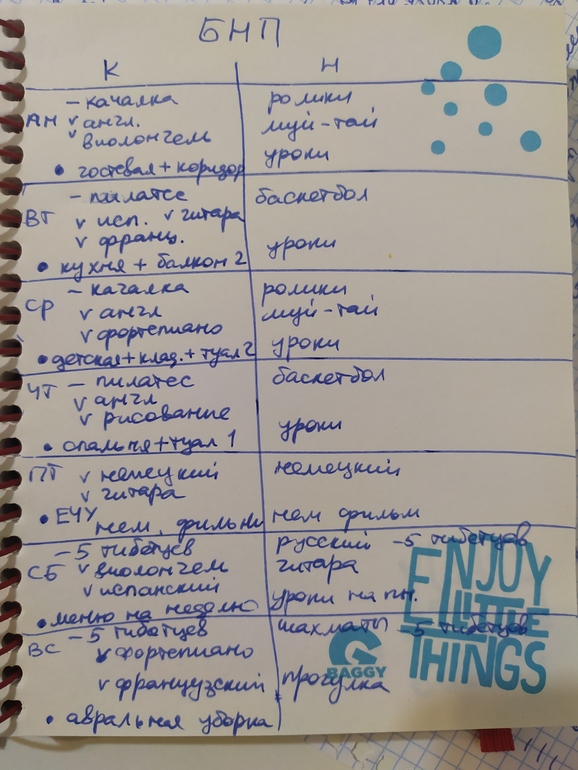 БНП
К Н
АН – качалка ролики
v англ. муй-тай
v виолончель
• гостевая + коридор уроки
ВТ – пилатес баскетбол
v исп. v гитара
v франц. уроки
• кухня + балкон 2
СР – качалка ролики
v англ муй-тай
v фортепиано
• детская + клад. + туал 2 уроки
ЧТ – пилатес баскетбол
v англ
v рисование уроки
• спальня + туал 1
ПТ v немецкий немецкий
v гитара
• ЕЧУ нем. фильм нем фильм
СБ – 5 тибетцев русский – 5 тибетцев
v виолончель гитара
v испанский уроки на пн.
• меню на неделю
ВС – 5 тибетцев шахматы – 5 тибетцев
v фортепиано
v французский прогулка
• авральная уборка
ENJOY
LITTLE
THINGS
BAGGY